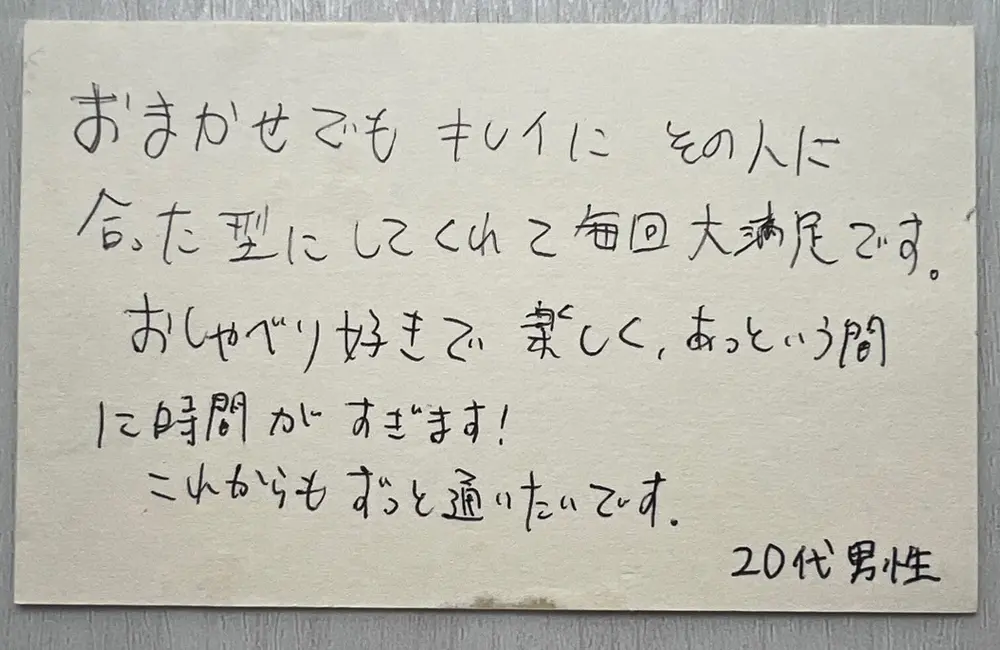 おまかせでも キレイに その人に
合った型にしてくれて毎回大満足です。
おしゃべり好きで 楽しく、あっという間
に時間が すぎます!
これからも ずっと通いたいです。
20代男性